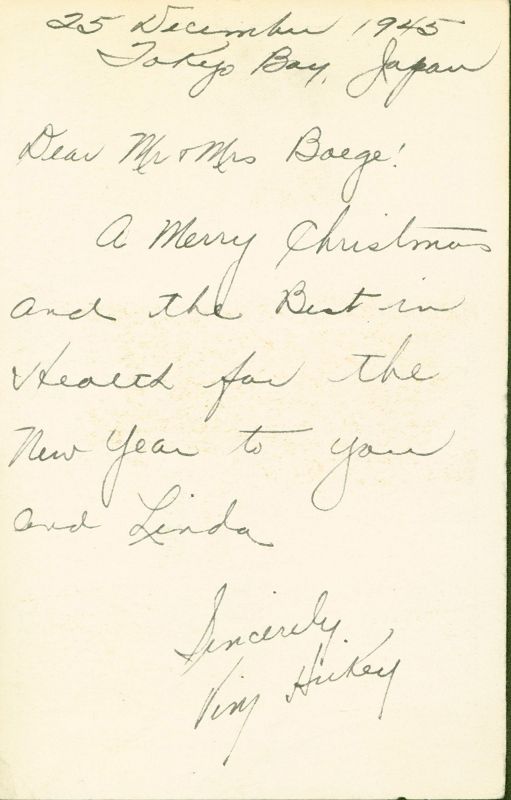 25 December 1945
Tokyo Bay, Japan
Dear Mr & Mrs Boege!
A Merry Christmas
and the Best in
Health for the
New Year to you
and Linda
Sincerely
Hickey